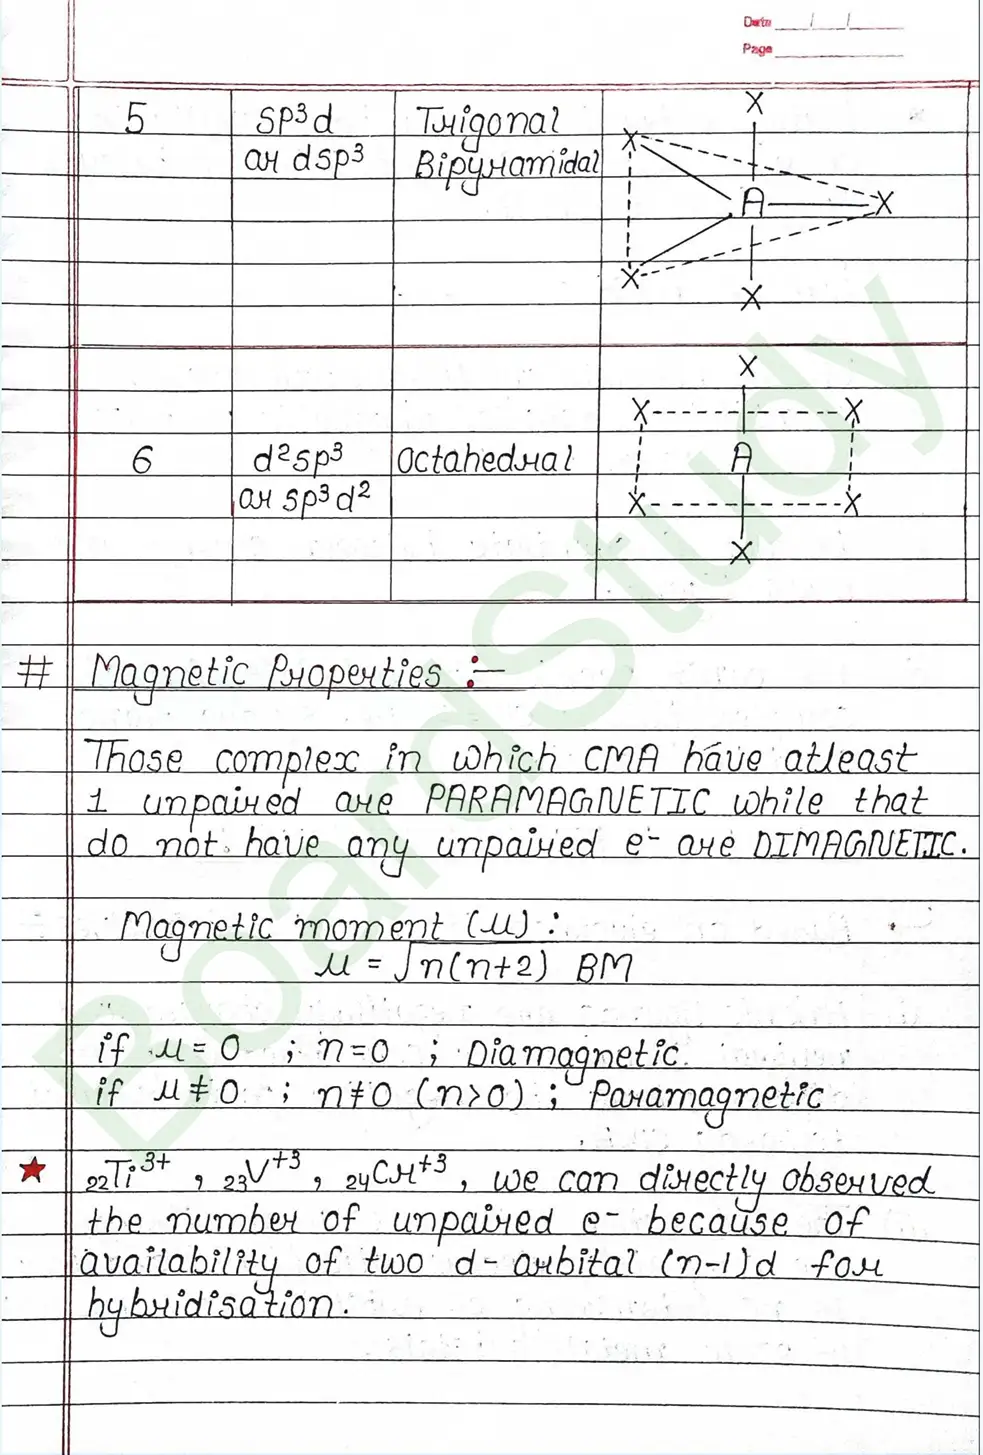 Date / /
Page
5 sp³d Trigonal
or dsp³ Bipyramidal
X
X
A X
X
X
X
X X
6 d²sp³ Octahedral A
or sp³d²
X X
X
# Magnetic Properties :-
Those complex in which CMA have atleast
1 unpaired are PARAMAGNETIC while that
do not have any unpaired e⁻ are DIMAGNETIC.
Magnetic moment (μ) :
μ = √n(n+2) BM
if μ = 0 ; n=0 ; Diamagnetic.
if μ ≠ 0 ; n≠0 (n>0) ; Paramagnetic
★ ₂₂Ti³⁺ , ₂₃V⁺³ , ₂₄Cr⁺³ , we can directly observed
the number of unpaired e⁻ because of
availability of two d-orbital (n-1)d for
hybridisation.
BoardStudy